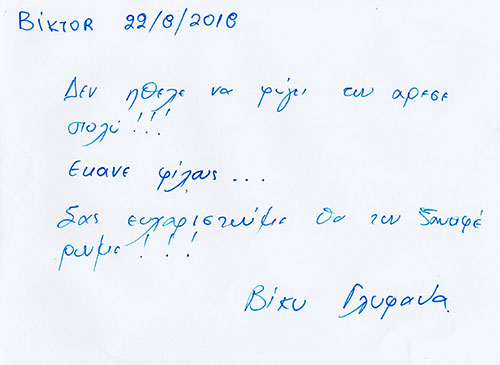 Βίκτοr 22/8/2018
Δεν ηθελε να φύγει του αρεσε
πολύ!!!
Εκανε φίλους...
Σας ευχαριστούμε θα τον ξαναφέ
ρουμε!!!
Βίκυ Γλυφανα